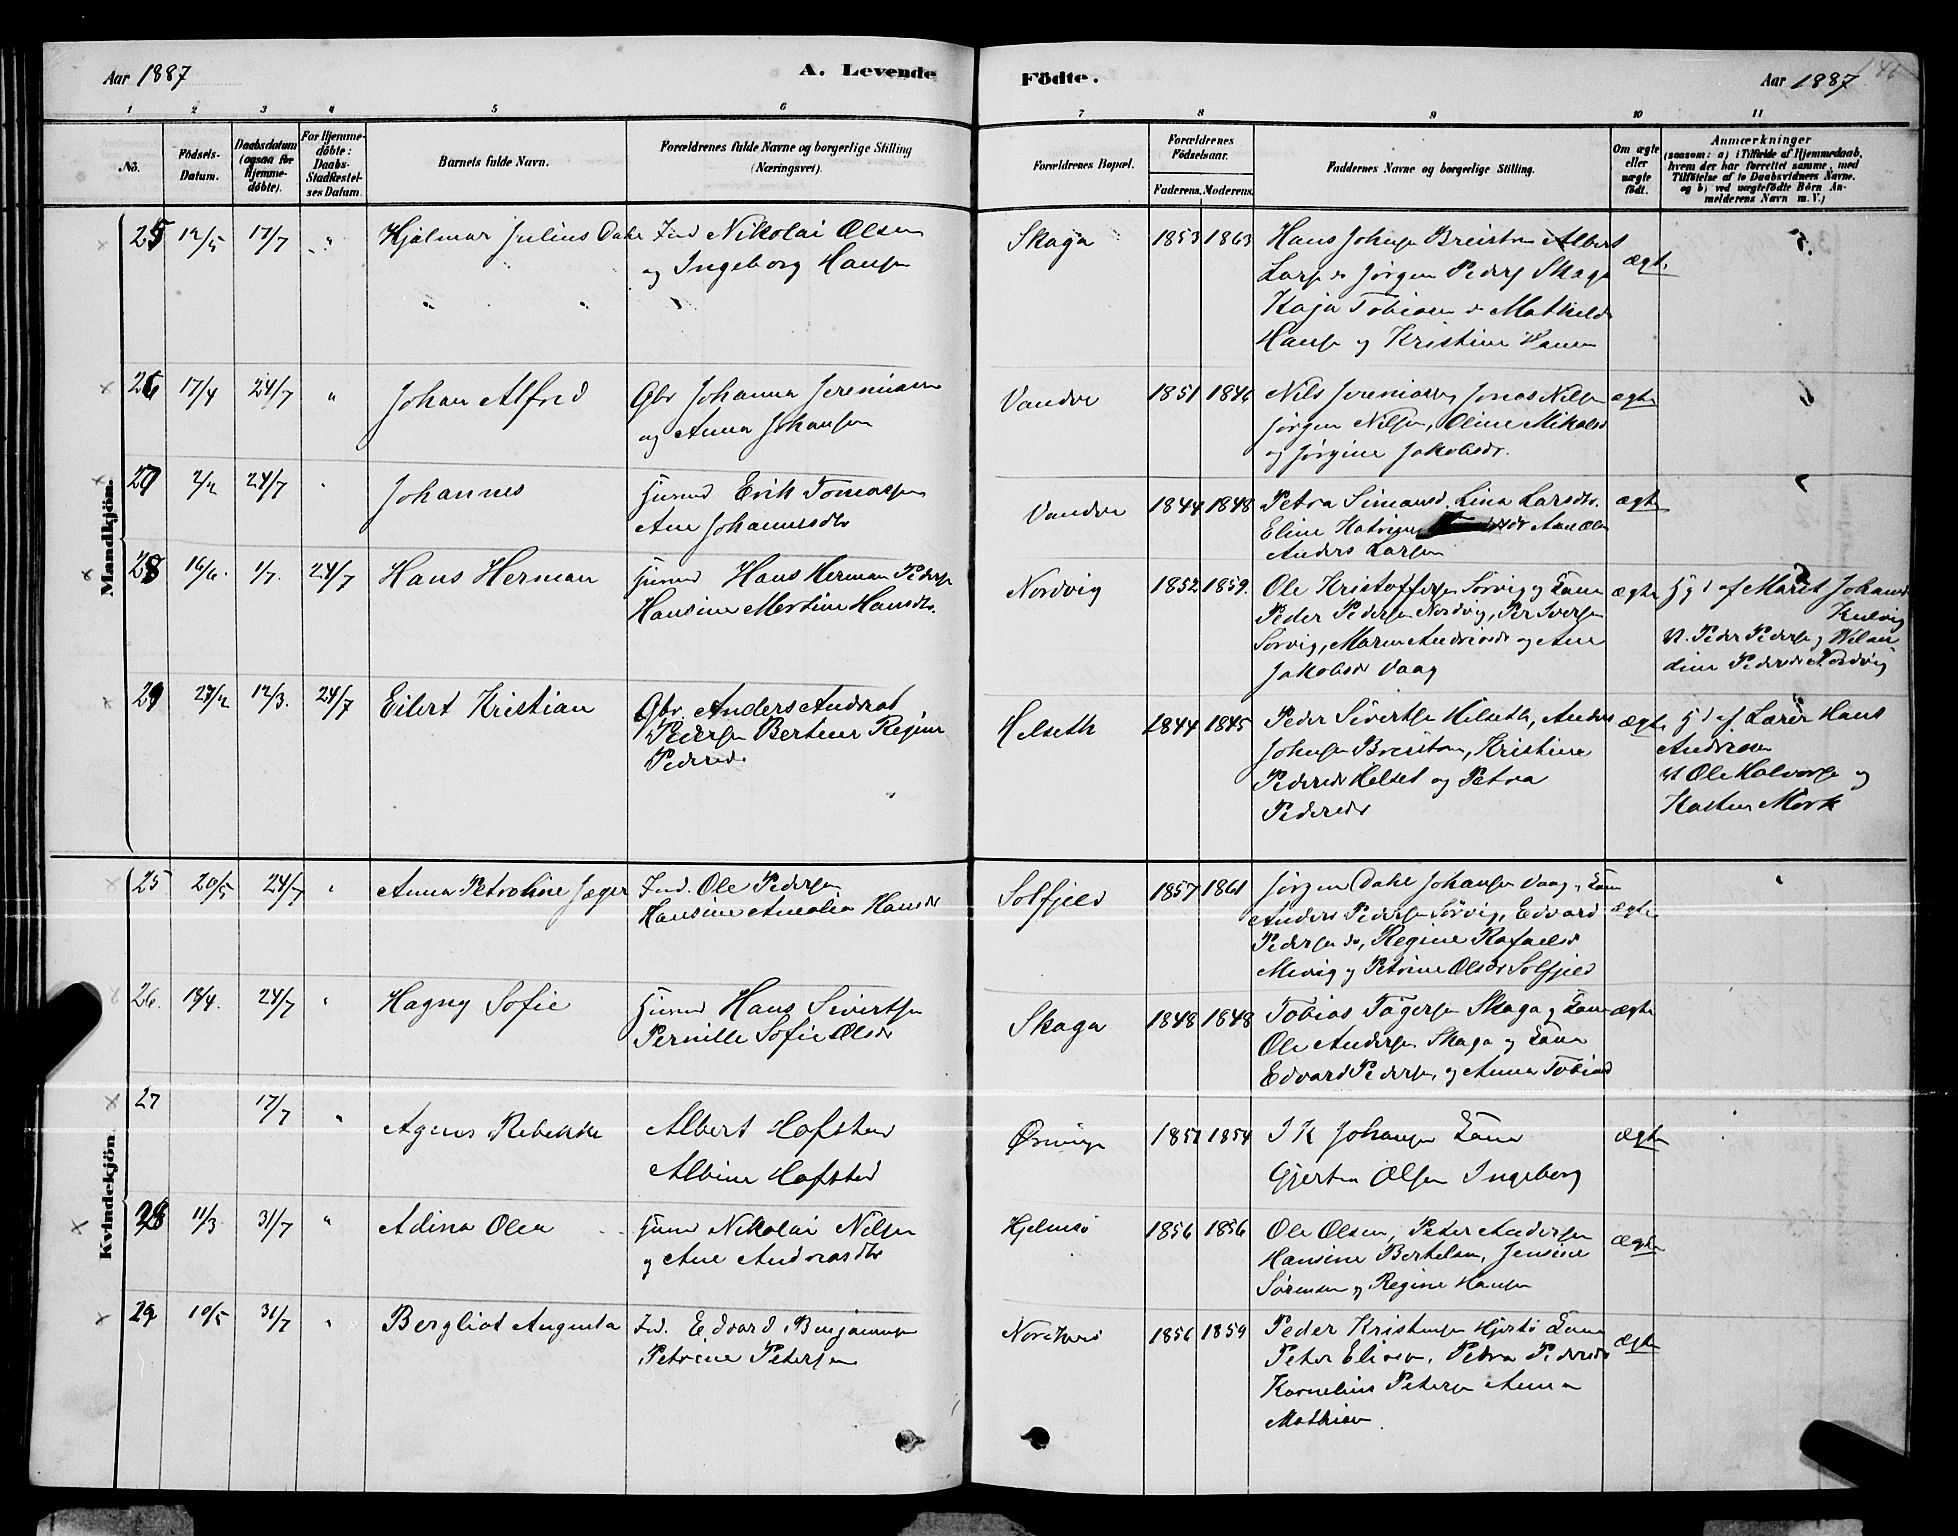 Aar 1887 A. Levende Födte. Aar 1887 146
1 2 3 4 5 6 7 8 9 10 11
No. Födsels-Datum. Daabsdatum (ogsaa for Hjemmedöbte). For Hjemmedöbte: Daabs-Stadfæstelses Datum. Barnets fulde Navn. Forældrenes fulde Navne og borgerlige Stilling (Næringsvei). Forældrenes Bopæl. Forældrenes Födselsaar. Faderens. Moderens. Faddernes Navne og borgerlige Stilling. Om ægte eller uægte födt. Anmærkninger (saasom: a) i Tilfælde af Hjemmedaab, hvem der har forrettet samme, med Tilföielse af to Daabsvidners Navne. og b) ved uægtefödte Börn Anmelderens Navn m.V.)
Mandkjön.
25 12/5 17/7 " Hjalmar Julius Dahl Ind Nikolai Olsen Skaga 1853 1863 Hans Johnsen Breistrm Albert ægte
og Ingeborg Hansen Lars do Jörgen Peders Skaga
Kaja Tobiasen do Mathilde
Hansen og Kristine Hansen
26 17/4 24/7 " Johan Alfred Gbr Johannes Jeremiasen Vandve 1851 1846 Nils Jeremiasen Jonas Nilsen ægte
og Anna Johansen Jörgen Nilsen, Oline Mikalsd
og Jörgine Jakobsdr.
27 2/2 24/7 " Johannes Husmd Erik Tomassen Vandve 1844 1848 Petra Simonsd. Lina Larsdtr. ægte
Ane Johannesdtr Eline Katrine Ane Olsen
Anders Larsen
28 16/6. 1/7. 24/7 Hans Herman Husmd Hans Herman Pedersen Nordvig 1852 1859. Ole Kristoffersen Sörvig og Kone ægte Hjd af Maret Johansd
Hansine Martine Hansdtr. Peder Pedersen Nordvig, Per Sversen
Sörvig, Maren Andreasdr og Ane V. Peder Pedersen og
Jakobsdr Vaag dine Pedersdr Nordvig
29 27/2 12/3. 24/7 Eilert Kristian Gbr. Anders Andreas Helseth 1844 1845 Peder Sivertsen Helseth, Anders ægte Hjd af Lærer Hans
Pedersen Bertine Regine Johnsen Breistrm, Kristine Andreasen
Pedersdr Pedersdr Helset og Petra V Ole Halvorsen og
Pedersdr Mörk
Kvindekjön.
25 20/5 24/7 " Anna Petroline Jæger Ind. Ole Pedersen Solfjeld 1857 1861 Jörgen Dahl Johansen Vaag og Kone ægte
Hansine Amalia Hansdr Anders Pedersen Sörvig, Edvard
Pedersen do, Regine Rafaelsd
Mevig og Petrine Olsdr Solfjeld
26. 18/4. 24/7 " Hagny Sofie Husmd Hans Sivertsen Skaga 1848 1848 Tobias Skaga og Kone ægte
Pernille Sofie Olsdr Ole Andersen Skaga og Kone
Edvard Pedersen, og Anna Tobiasd
27 17/7 " Agnes Rebekke Albert Hofsted 1851 1854 I K Johansen Kone ægte
Albine Hofsted Olsen Ingeborg
28 11/3 31/7 " Adina Olea Husmd Nikolai Nilsen Hjelmsö 1856 1856 Ole Olsen, Peter Andersen ægte
og Ane Andreasdtr Hansine Bertelsen, Jensine
Sörensen og Regine Hansen
29 10/5 31/7 " Bergliot Augusta Ind. Edvard Benjaminsen 1856 1859 Peder Kristensen Hjertö Kone ægte
Petrine Petersen Peter Eliasen, Petra Pedersdr
Kornelius Petersen Anna
Mathisen.